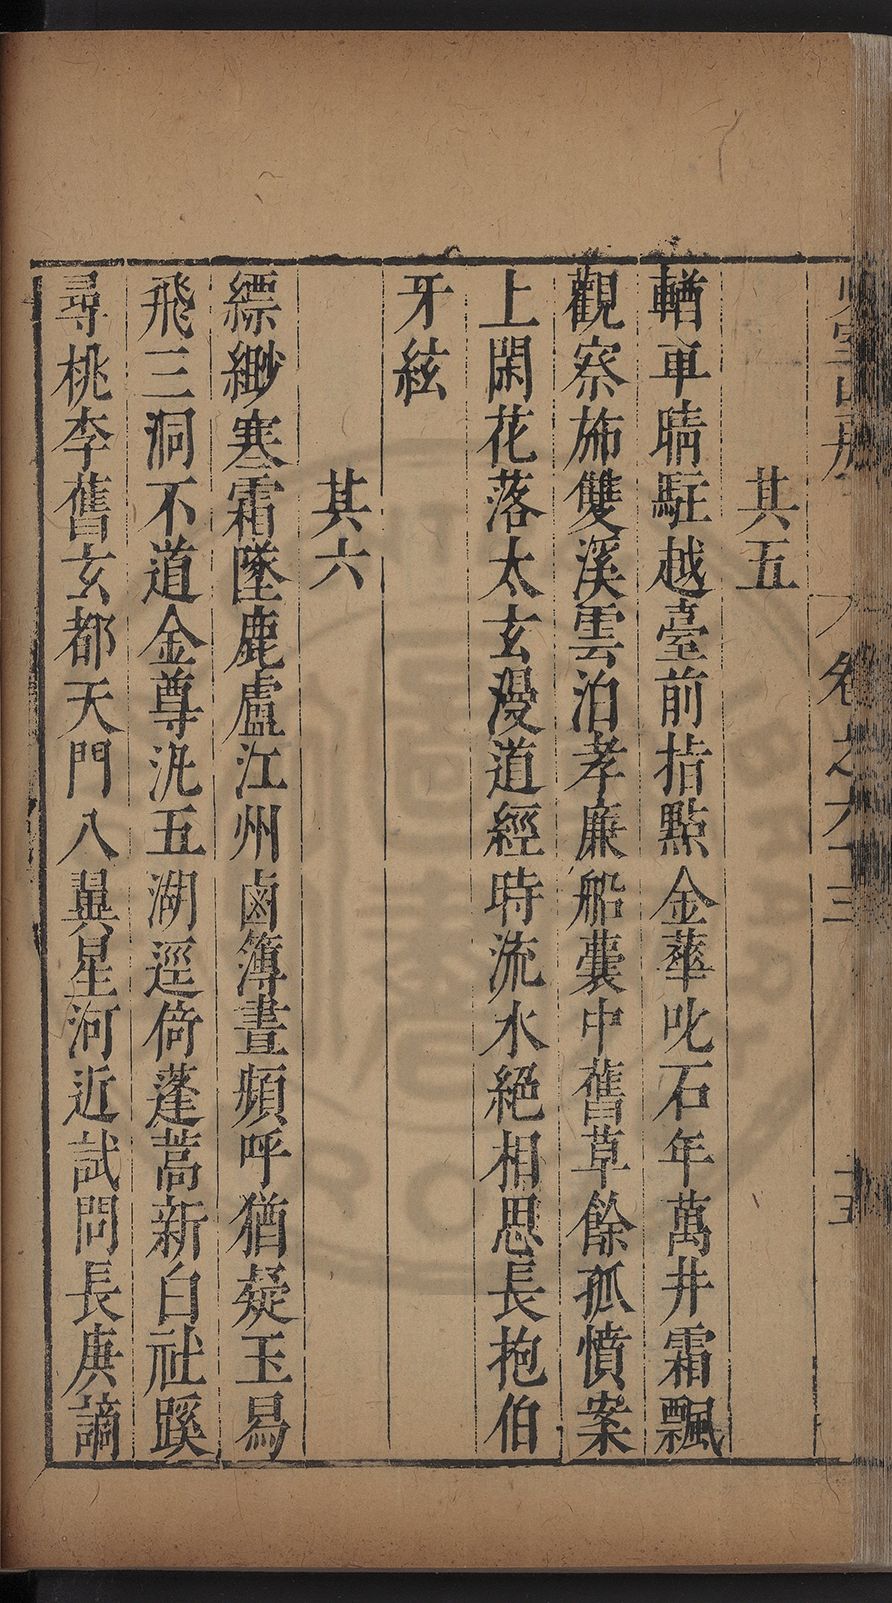 卷之六十三
其五
輶車晴駐越臺前指點金華叱石年萬井霜飄
觀察斾雙溪雲泊孝廉船囊中舊草餘孤憤案
上閑花落太玄漫道經時流水絕相思長抱伯
牙絃
其六
縹緲寒霜墜鹿盧江州鹵簿晝頻呼猶疑玉舄
飛三洞不道金尊汎五湖逕倚蓬蒿新白社蹊
尋桃李舊玄都天門八翼星河近試問長庚謫